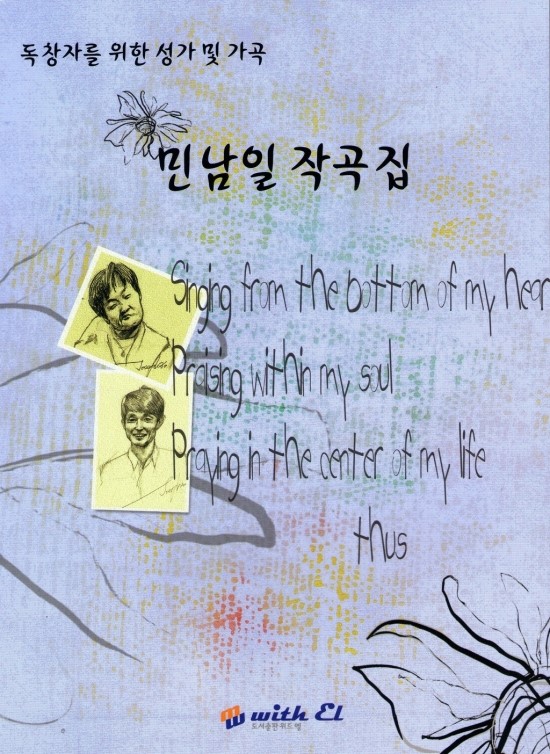 독창자를 위한 성가 및 가곡
민남일 작곡집
Singing from the bottom of my hear
Praising within my soul
Praying in the center of my life
thus
with El
도서출판 위드엘